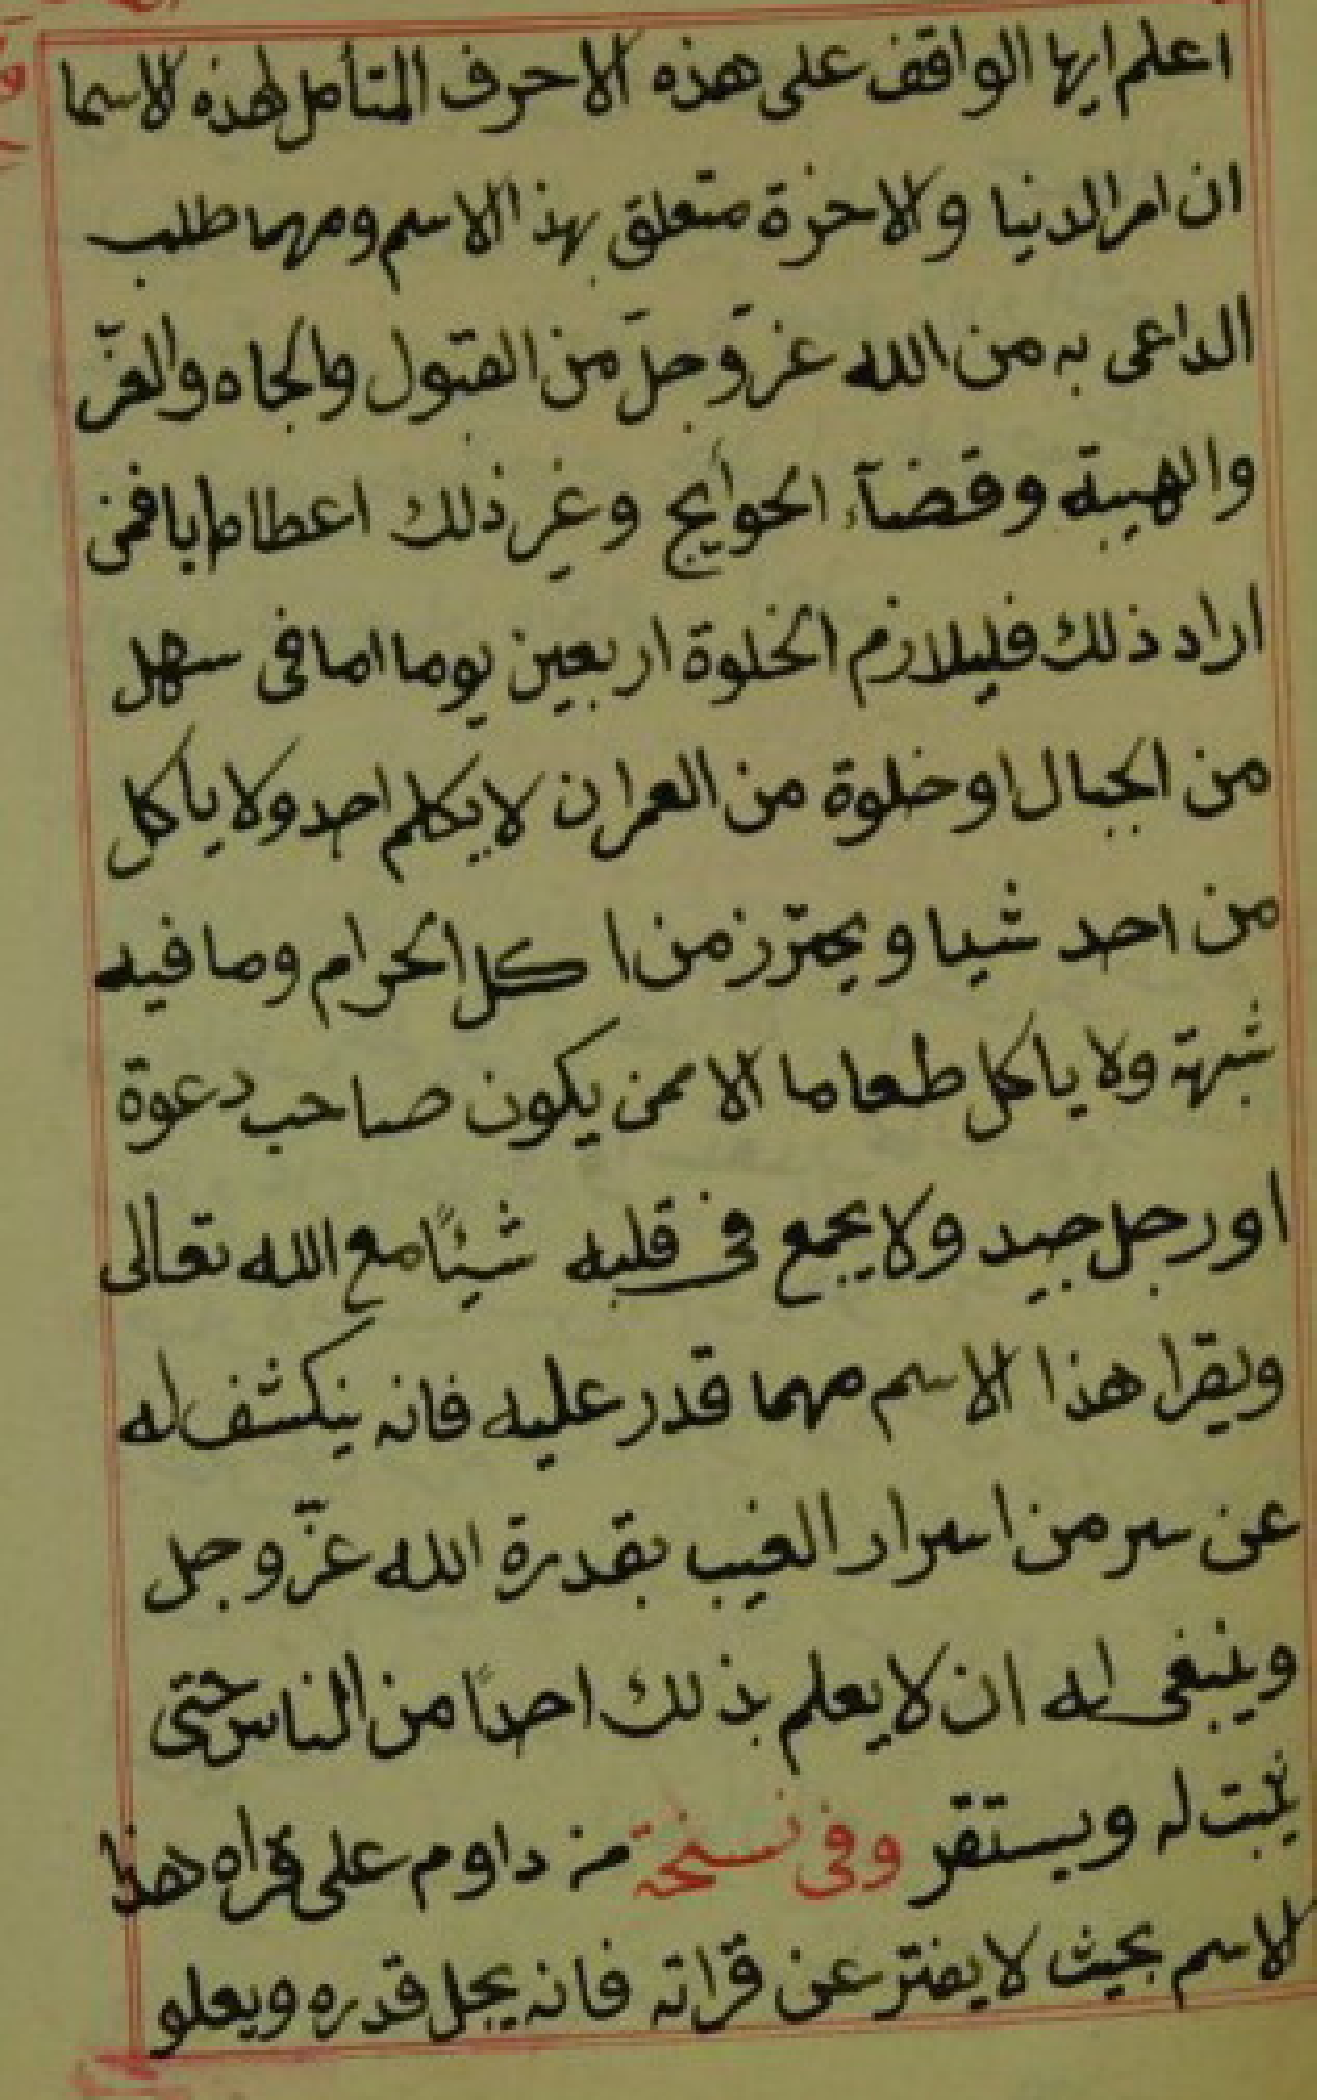 اعلم ايها الواقف على هذه الاحرف المتأمل لهذه الاسما
ان امر الدنيا والاخرة متعلق بهذا الاسم ومهما طلب
الداعى به من الله عز وجل من القبول والجاه والعز
والهيبة وقضآء الحوايج وغير ذلك اعطاه ايا فمن
اراد ذلك فليلازم الخلوة اربعين يوما اما فى سهل
من الجبال او خلوة من العمران لا يكلم احد ولا ياكل
من احد شيا ويحترز من اكل الحرام وما فيه
شبهة ولا ياكل طعاما الا ممن يكون صاحب دعوة
او رجل جيد ولا يجمع فى قلبه شيئًا مع الله تعالى
ويقرا هذا الاسم مهما قدر عليه فانه ينكشف له
عن سر من اسرار الغيب بقدرة الله عزّ وجل
وينبغى له ان لا يعلم بذلك احدًا من الناس حتى
يثبت له ويستقر وفى نسخة من داوم على قراه هذا
الاسم بحيث لا يفتر عن قراته فانه يجل قدره ويعلو